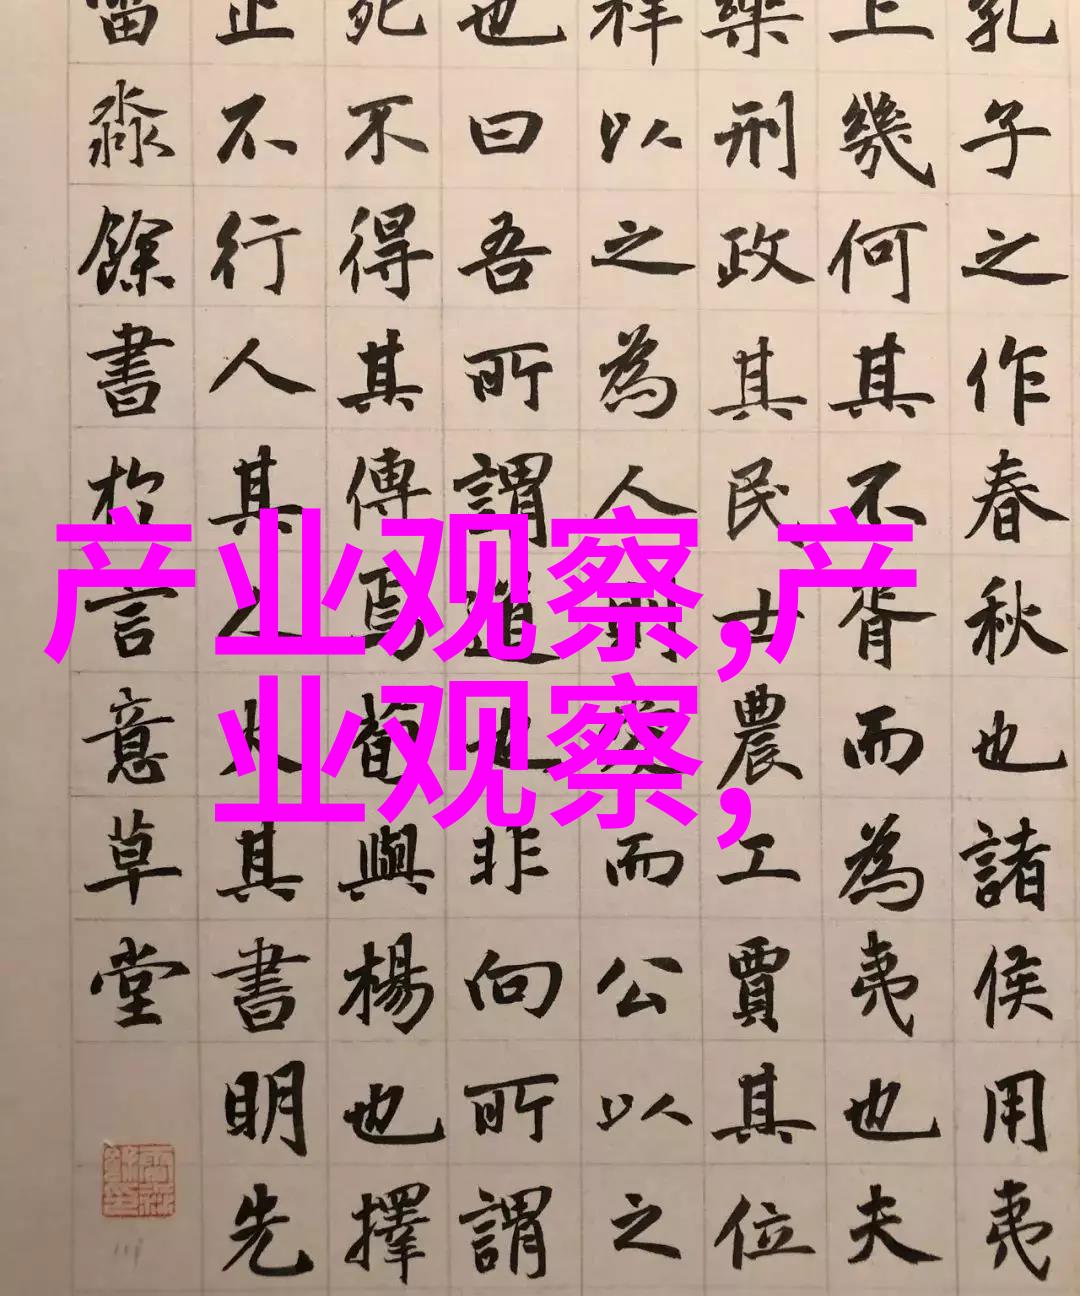 产业观察,产
业观察,
孔子之作春秋也諸侯用夷
上幾何其不胥而為夷也夫
樂刑政其民士農工賈其位
祥以之為人則愛而公以之
也曰吾所謂道也非向所謂
死不得其傳焉荀與楊也擇
止不行人其人火其書明先
淼餘書於言意草堂